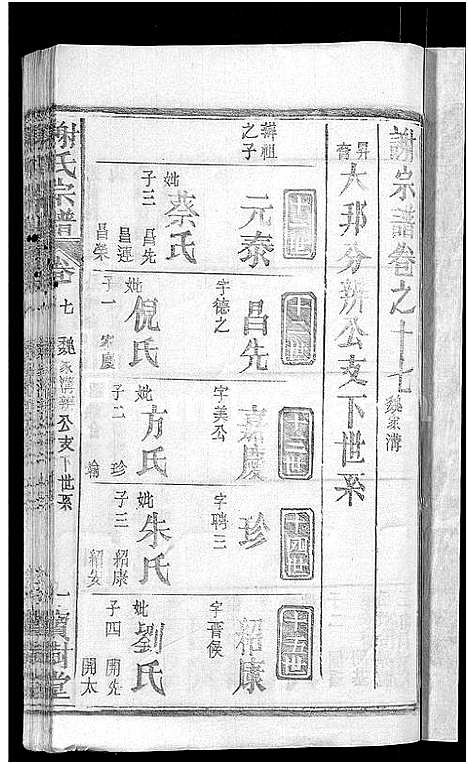 謝宗譜卷之十七魏家溝
昇奮大邦分辨公支下世系
十一世
元泰
辨祖之子
妣蔡氏
子三 昌先 昌運 昌榮
十二世
昌先
字德之
妣倪氏
子一
十三世
嘉慶
字美公
妣方氏
子二 珍
十四世
珍
字聘三
妣朱氏
子三 紹康 紹安
十五世
紹康
字晋侯
妣劉氏
子四 開先 開太
謝氏宗譜 卷十七 魏家溝辨公支下世系 一 寶樹堂